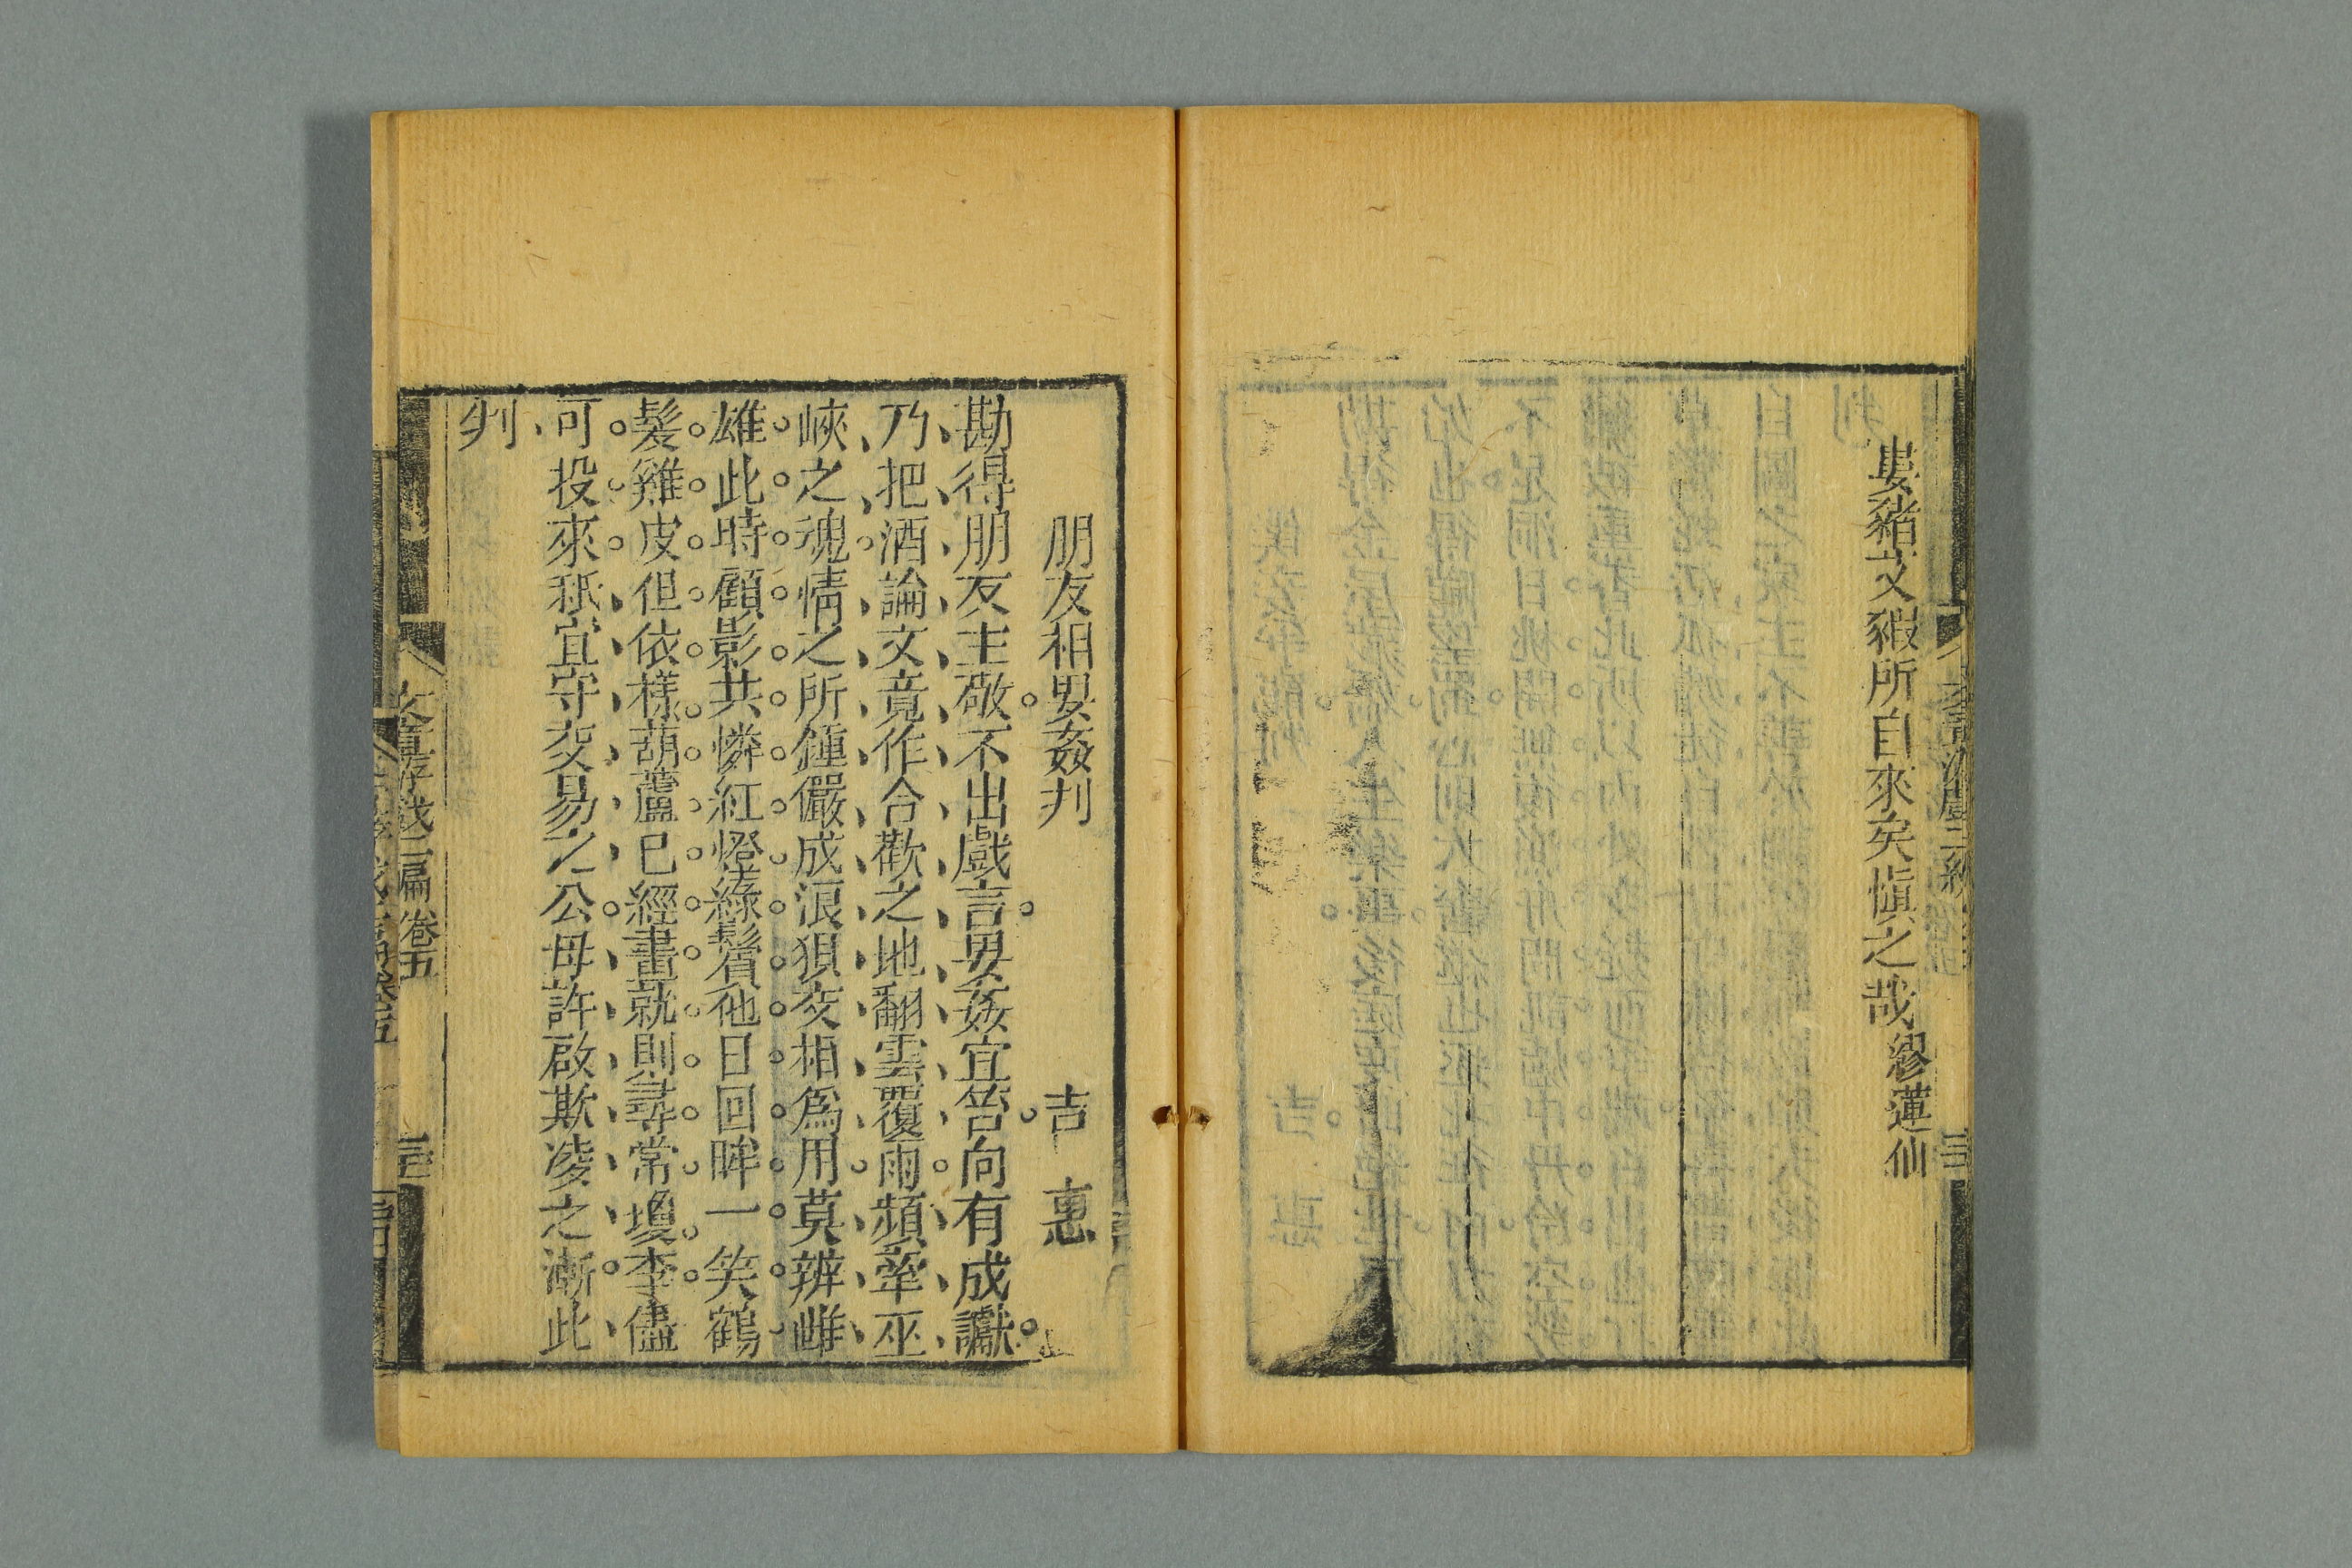 婁豬艾豭所自來矣愼之哉繆蓮仙
朋友相㚻姦判 吉惠
勘得朋友主敬不出戲言㚻姦宜笞向有成讞
乃把酒論文竟作合歡之地翻雲覆雨頻牽巫
峽之魂情之所鍾儼成浪狽交相爲用莫辨雌
雄此時顧影共憐紅燈綠鬢他日回眸一笑鶴
髮雞皮但依樣葫蘆已經畫就則尋常瓊李儘
可投來秖宜守交易之公毋許啟欺凌之漸此
判
文章游戲二編 卷五